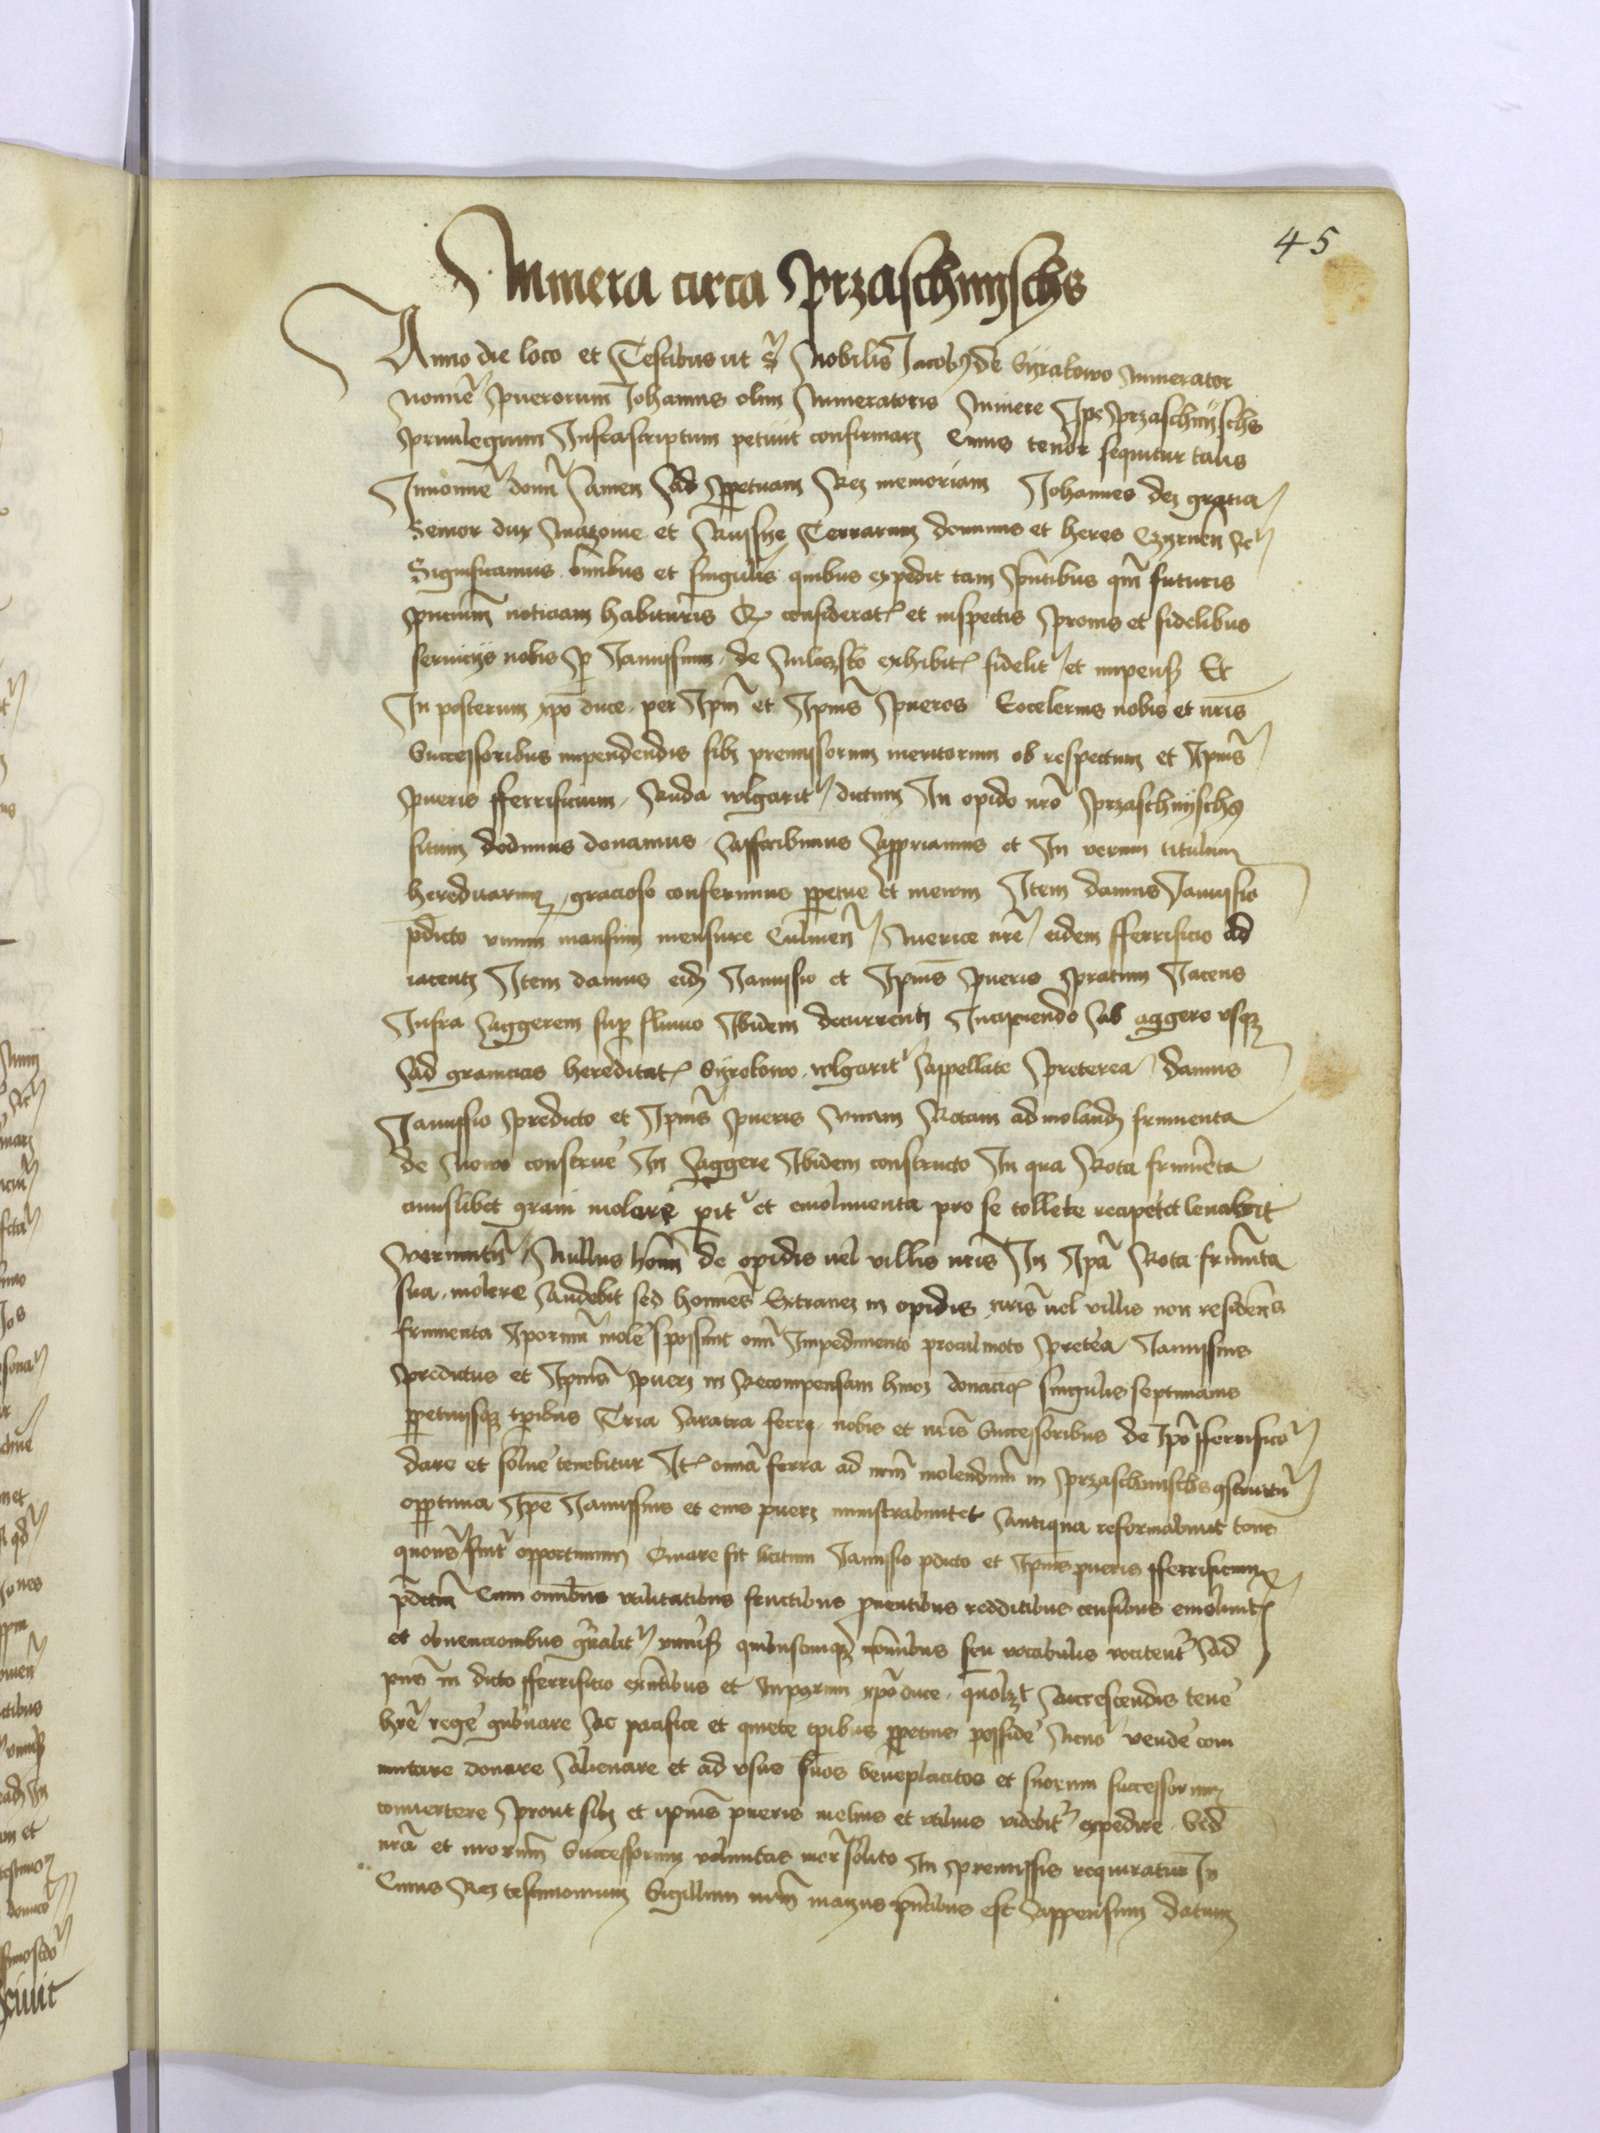 45
Minera circa Przaschnyschs
Anno die loco et Testibus ut s Nobilis Jacobus de Syrakowo Minerator
nomine puerorum Johannis olim Mineratoris Minere Ipe Przaschnyschs
privilegium Infrascriptum petiuit confirmari Cuius tenor sequitur talis
In nomine domini Amen Ad perpetuam Rei memoriam Johannes dei gratia
Senior dux Mazouie et Russye Terrarum dominus et heres Czyrnen
Significamus omnibus et singulis quibus expedit tam presentibus quam futuris
noticiam habituris consideratis et inspectis pronis et fidelibus
seruicijs nobis per Janussium de exhibitis fideliter et impensis Et
In posterum xpo duce per Ipm et Ipius pueros nobis et nris
Successoribus impendendis sibi premissorum meritorum ob respectum et Ipius
pueris fferrificium Ruda wlgariter dictum In opido nro Przaschnyschs
situm dedimus donamus Asscribimus Appropriamus et In verum titulum
gracioso conferimus perpetue et Item damus Janussio
pdicto vnum mansum mensure Culmen Merice nre eidem fferrificio ad
iacentem Item damus eidem Janussio et Ipius pueris pratum Jacens
Infra Aggerem super fluuio Ibidem decurrenti Incipiendo Ab aggere vsque
Ad granicias hereditatis Syrokowo wlgariter Appellate Preterea damus
Janussio predicto et Ipius pueris Vnam Rotam ad molandum frumenta
de Nouo construere In Aggere Ibidem constructo In qua Rota frumenta
cuiuslibet grani molare poterit et emolimenta pro se tollere recipere et leuabit
Verumtamen Nullus hominum de opidis uel villis nris In Ipa Rota frumenta
sua molere Audebit sed homines Extranei in opidis nris uel villis non residens
frumenta Iporum molere possunt omni Impedimento procul moto Preterea Janussius
predictus et Ipius pueri in Recompensam huiusmodi donacionis singulis septimanis
perpetuisque temporibus Tria Aratra ferri nobis et nris Successoribus de Ipo fferrificio
dare et soluere tenebitur Item omnia ferra ad nrm molendinum in Przaschnyschs
opportuna Ipe Janussius et eius pueri ministrabunt et Antiqua reformabunt
quociens fuerit opportunum Quare sit licitum Janussio pdicto et Ipius pueris fferrificium
pdictum Cum omnibus vtilitatibus fructibus prouentibus redditibus censibus emolimentis
et obuencionibus generaliter vniuersis quibuscumque nominibus seu vocabulis vocitentur Ad
presens in dicto fferrificio existentibus et Imposterum xpo duce quolibet Accrescendis tenere
habere regere gubernare Ac pacifice et quiete temporibus perpetuis possidere vendere com
mutare donare Alienare et ad vsus suos beneplacitos et suorum successorum
conuertere Prout sibi et ipius pueris melius et vtilius videbitur expedire Sed
nra et nrorum Successorum voluntas more solito In premissis requiratur In
Cuius Rei testimonium Sigillum nrm maius presentibus est Appensum datum